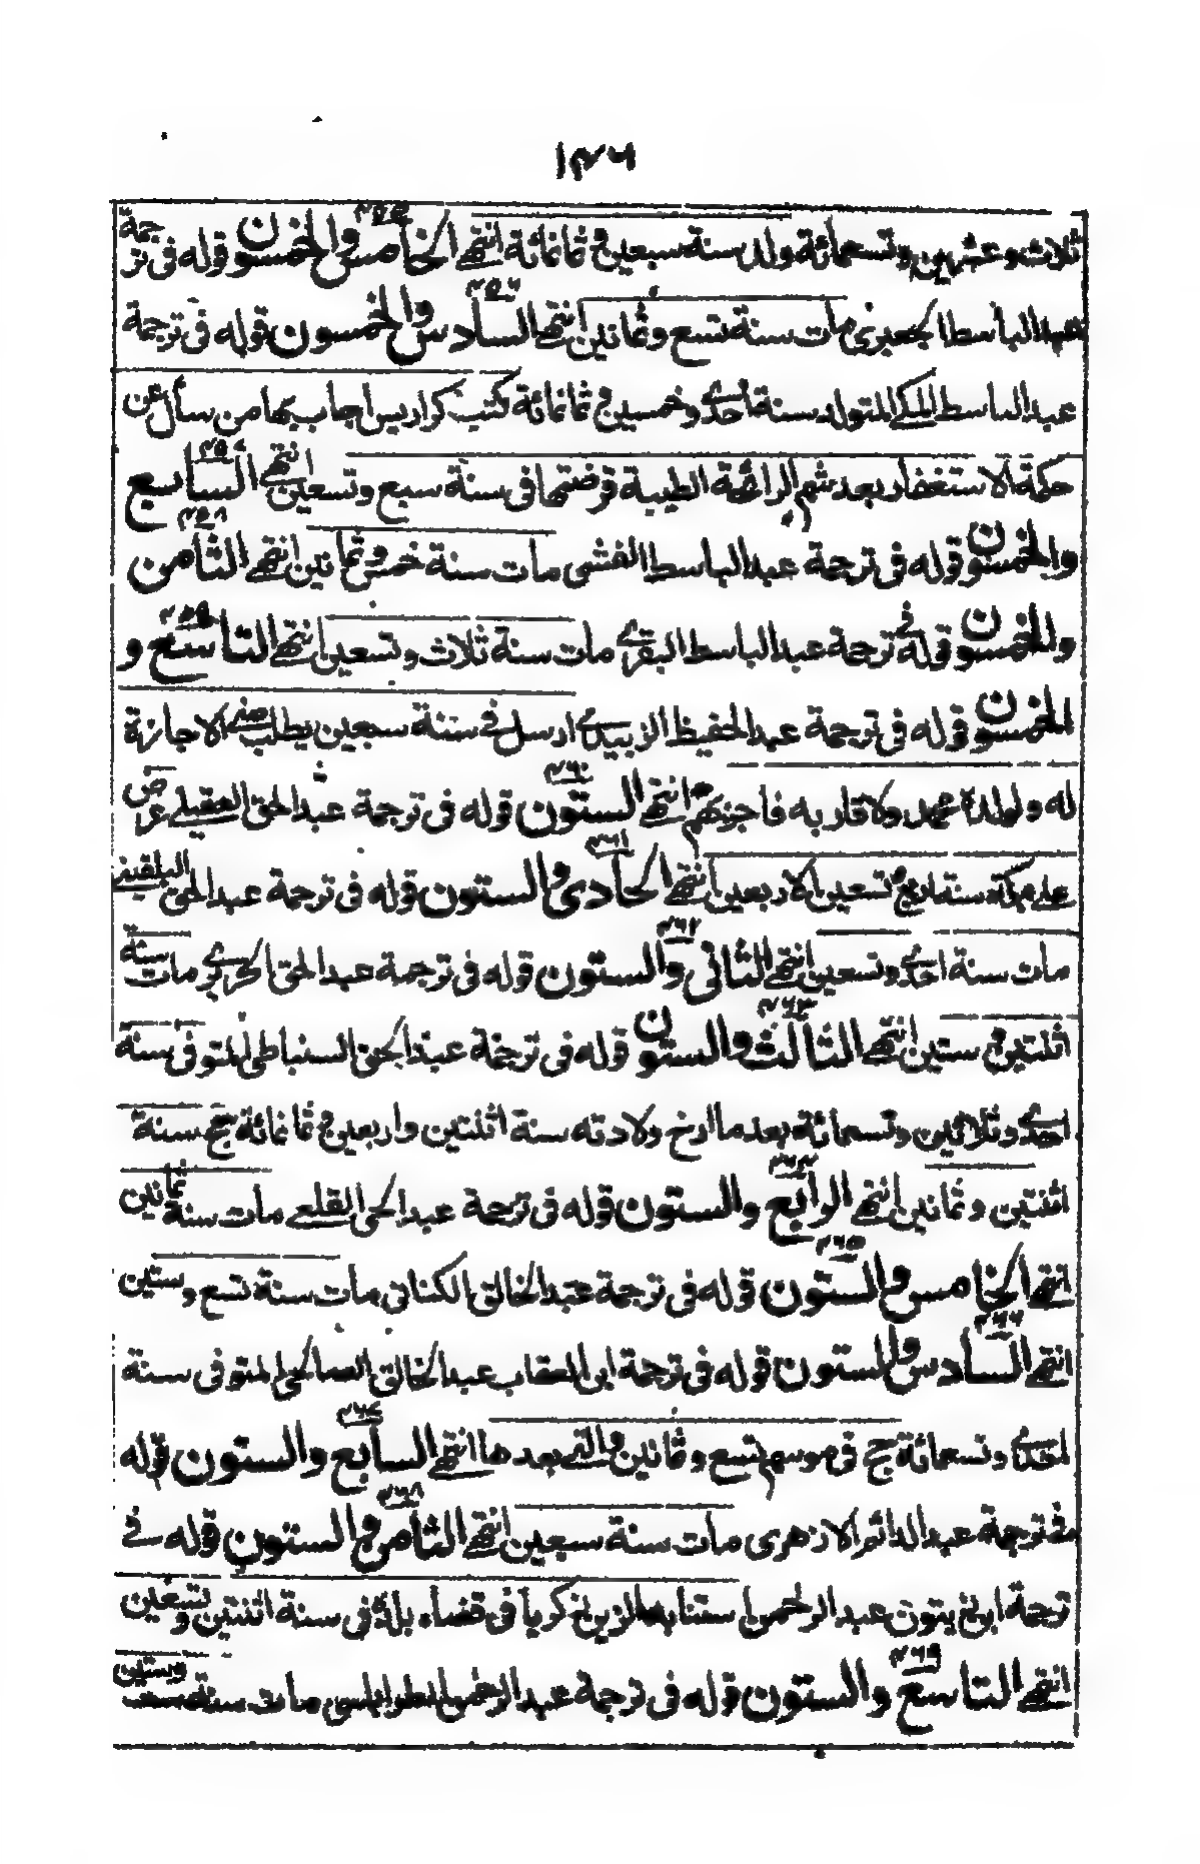 ١٣٦
ثلاث وعشرين وتسعمائة ولد سنة سبعين وثمانمائة انتهى الخامس والخمسون ٢٥٥ قوله في ترجمة
عبد الباسط الجعبري مات سنة تسع وثمانين انتهى السادس والخمسون ٢٥٦ قوله في ترجمة
عبد الباسط المكي المتولد سنة احدى وخمسين وثمانمائة كتب كراريس اجاب بها من سأل عن
حكمة الاستغفار بعد شم الرائحة الطيبة قرضتها في سنة سبع وتسعين انتهى السابع ٢٥٧
والخمسون قوله في ترجمة عبد الباسط الفشي مات سنة خمس وثمانين انتهى الثامن ٢٥٨
والخمسون قوله في ترجمة عبد الباسط البقري مات سنة ثلاث وتسعين انتهى التاسع و ٢٥٩
الخمسون قوله في ترجمة عبد الحفيظ الزبيدي ارسل في سنة سبعين يطلب منه الاجازة
له ولولده محمد ولاقاربه فاجزتهم انتهى الستون ٢٦٠ قوله في ترجمة عبد الحق العقيلي عرض
على بمكة سنة اربع وتسعين الاربعين انتهى الحادي والستون ٢٦١ قوله في ترجمة عبد الحق البلقيني
مات سنة احدى وتسعين انتهى الثاني والستون ٢٦٢ قوله في ترجمة عبد الحق الكريري مات سنة
اثنتين وستين انتهى الثالث والستون ٢٦٣ قوله في ترجمة عبد الحق السنباطي المتوفى سنة
احدى وثلاثين وتسعمائة بعد ما ارخ ولادته سنة اثنتين واربعين وثمانمائة حج سنة
اثنتين وثمانين انتهى الرابع والستون ٢٦٤ قوله في ترجمة عبد الحي القلعي مات سنة ثمانين
انتهى الخامس والستون ٢٦٥ قوله في ترجمة عبد الخالق الكناني مات سنة تسع وستين
انتهى السادس والستون ٢٦٦ قوله في ترجمة ابن العقاب عبد الخالق الصالحي المتوفى سنة
احدى وتسعمائة حج في موسم تسع وثمانين والتي بعدها انتهى السابع والستون ٢٦٧ قوله
في ترجمة عبد الدائم الازهري مات سنة سبعين انتهى الثامن والستون ٢٦٨ قوله في
ترجمة ابن زيتون عبد الرحمن استنابه الزين زكريا في قضاء بلده في سنة اثنتين وتسعين
انتهى التاسع والستون ٢٦٩ قوله في ترجمة عبد الرحمن الطرابلسي مات سنة